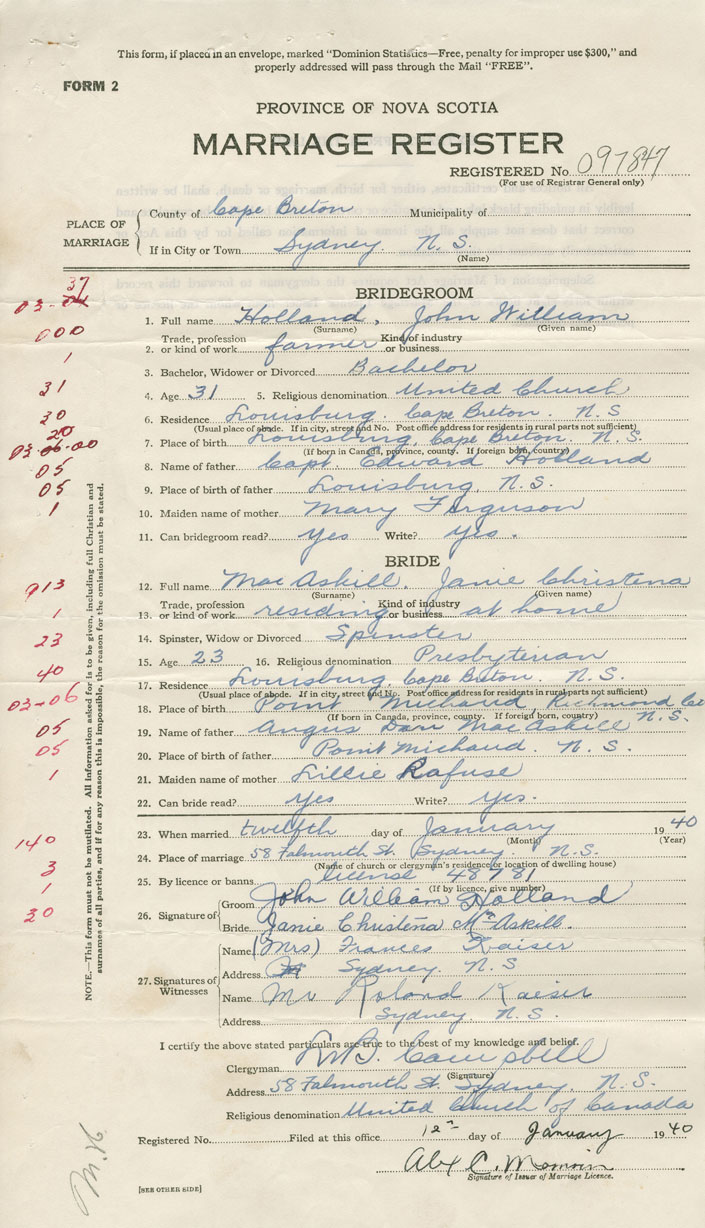 This form, if placed in an envelope, marked "Dominion Statistics—Free, penalty for improper use $300," and
properly addressed will pass through the Mail "FREE".
FORM 2
PROVINCE OF NOVA SCOTIA
MARRIAGE REGISTER
REGISTERED No. 097847
(For use of Registrar General only)
PLACE OF MARRIAGE
County of Cape Breton Municipality of
If in City or Town Sydney. N. S.
(Name)
37
03-04
BRIDEGROOM
1. Full name Holland, John William
(Surname) (Given name)
000
2. Trade, profession or kind of work farmer Kind of industry or business
1
3. Bachelor, Widower or Divorced Bachelor
31
4. Age 31 5. Religious denomination United Church
30
6. Residence Louisburg. Cape Breton. N. S
(Usual place of abode. If in city, street and No. Post office address for residents in rural parts not sufficient)
20
03-06-00
7. Place of birth Louisburg, Cape Breton. N. S.
(If born in Canada, province, county. If foreign born, country)
05
8. Name of father Capt. Edward Holland
05
9. Place of birth of father Louisburg, N. S.
1
10. Maiden name of mother Mary Ferguson
11. Can bridegroom read? Yes Write? Yes.
BRIDE
913
12. Full name MacAskill, Janie Christena
(Surname) (Given name)
1
13. Trade, profession or kind of work residing Kind of industry or business at home
23
14. Spinster, Widow or Divorced Spinster
15. Age 23 16. Religious denomination Presbyterian
40
17. Residence Louisburg. Cape Breton. N. S.
(Usual place of abode. If in city, street and No. Post office address for residents in rural parts not sufficient)
03-06
18. Place of birth Point Michaud, Richmond Co N. S.
(If born in Canada, province, county. If foreign born, country)
05
19. Name of father Angus Dan MacAskill
05
20. Place of birth of father Point Michaud. N. S.
1
21. Maiden name of mother Lillie Rafuse
22. Can bride read? Yes Write? Yes.
23. When married twelfth day of January 1940
(Month) (Year)
140
24. Place of marriage 58 Falmouth St. Sydney. N. S.
(Name of church or clergyman's residence or location of dwelling house)
3
25. By licence or banns license 48781
(If by licence, give number)
1
30
26. Signature of
Groom John William Holland
Bride Janie Christena McAskill.
27. Signatures of Witnesses
Name (Mrs) Frances Kaiser
Address Sydney. N. S
Name Mr Roland Kaiser
Address Sydney N. S.
I certify the above stated particulars are true to the best of my knowledge and belief.
Clergyman Campbell
(Signature)
Address 58 Falmouth St. Sydney N. S.
Religious denomination United Church of Canada
Registered No. Filed at this office 12th day of January 1940
Alex C.
Signature of Issuer of Marriage Licence.
[SEE OTHER SIDE]
NOTE.—This form must not be mutilated. All information asked for is to be given, including full Christian and
surnames of all parties, and if for any reason this is impossible, the reason for the omission must be stated.